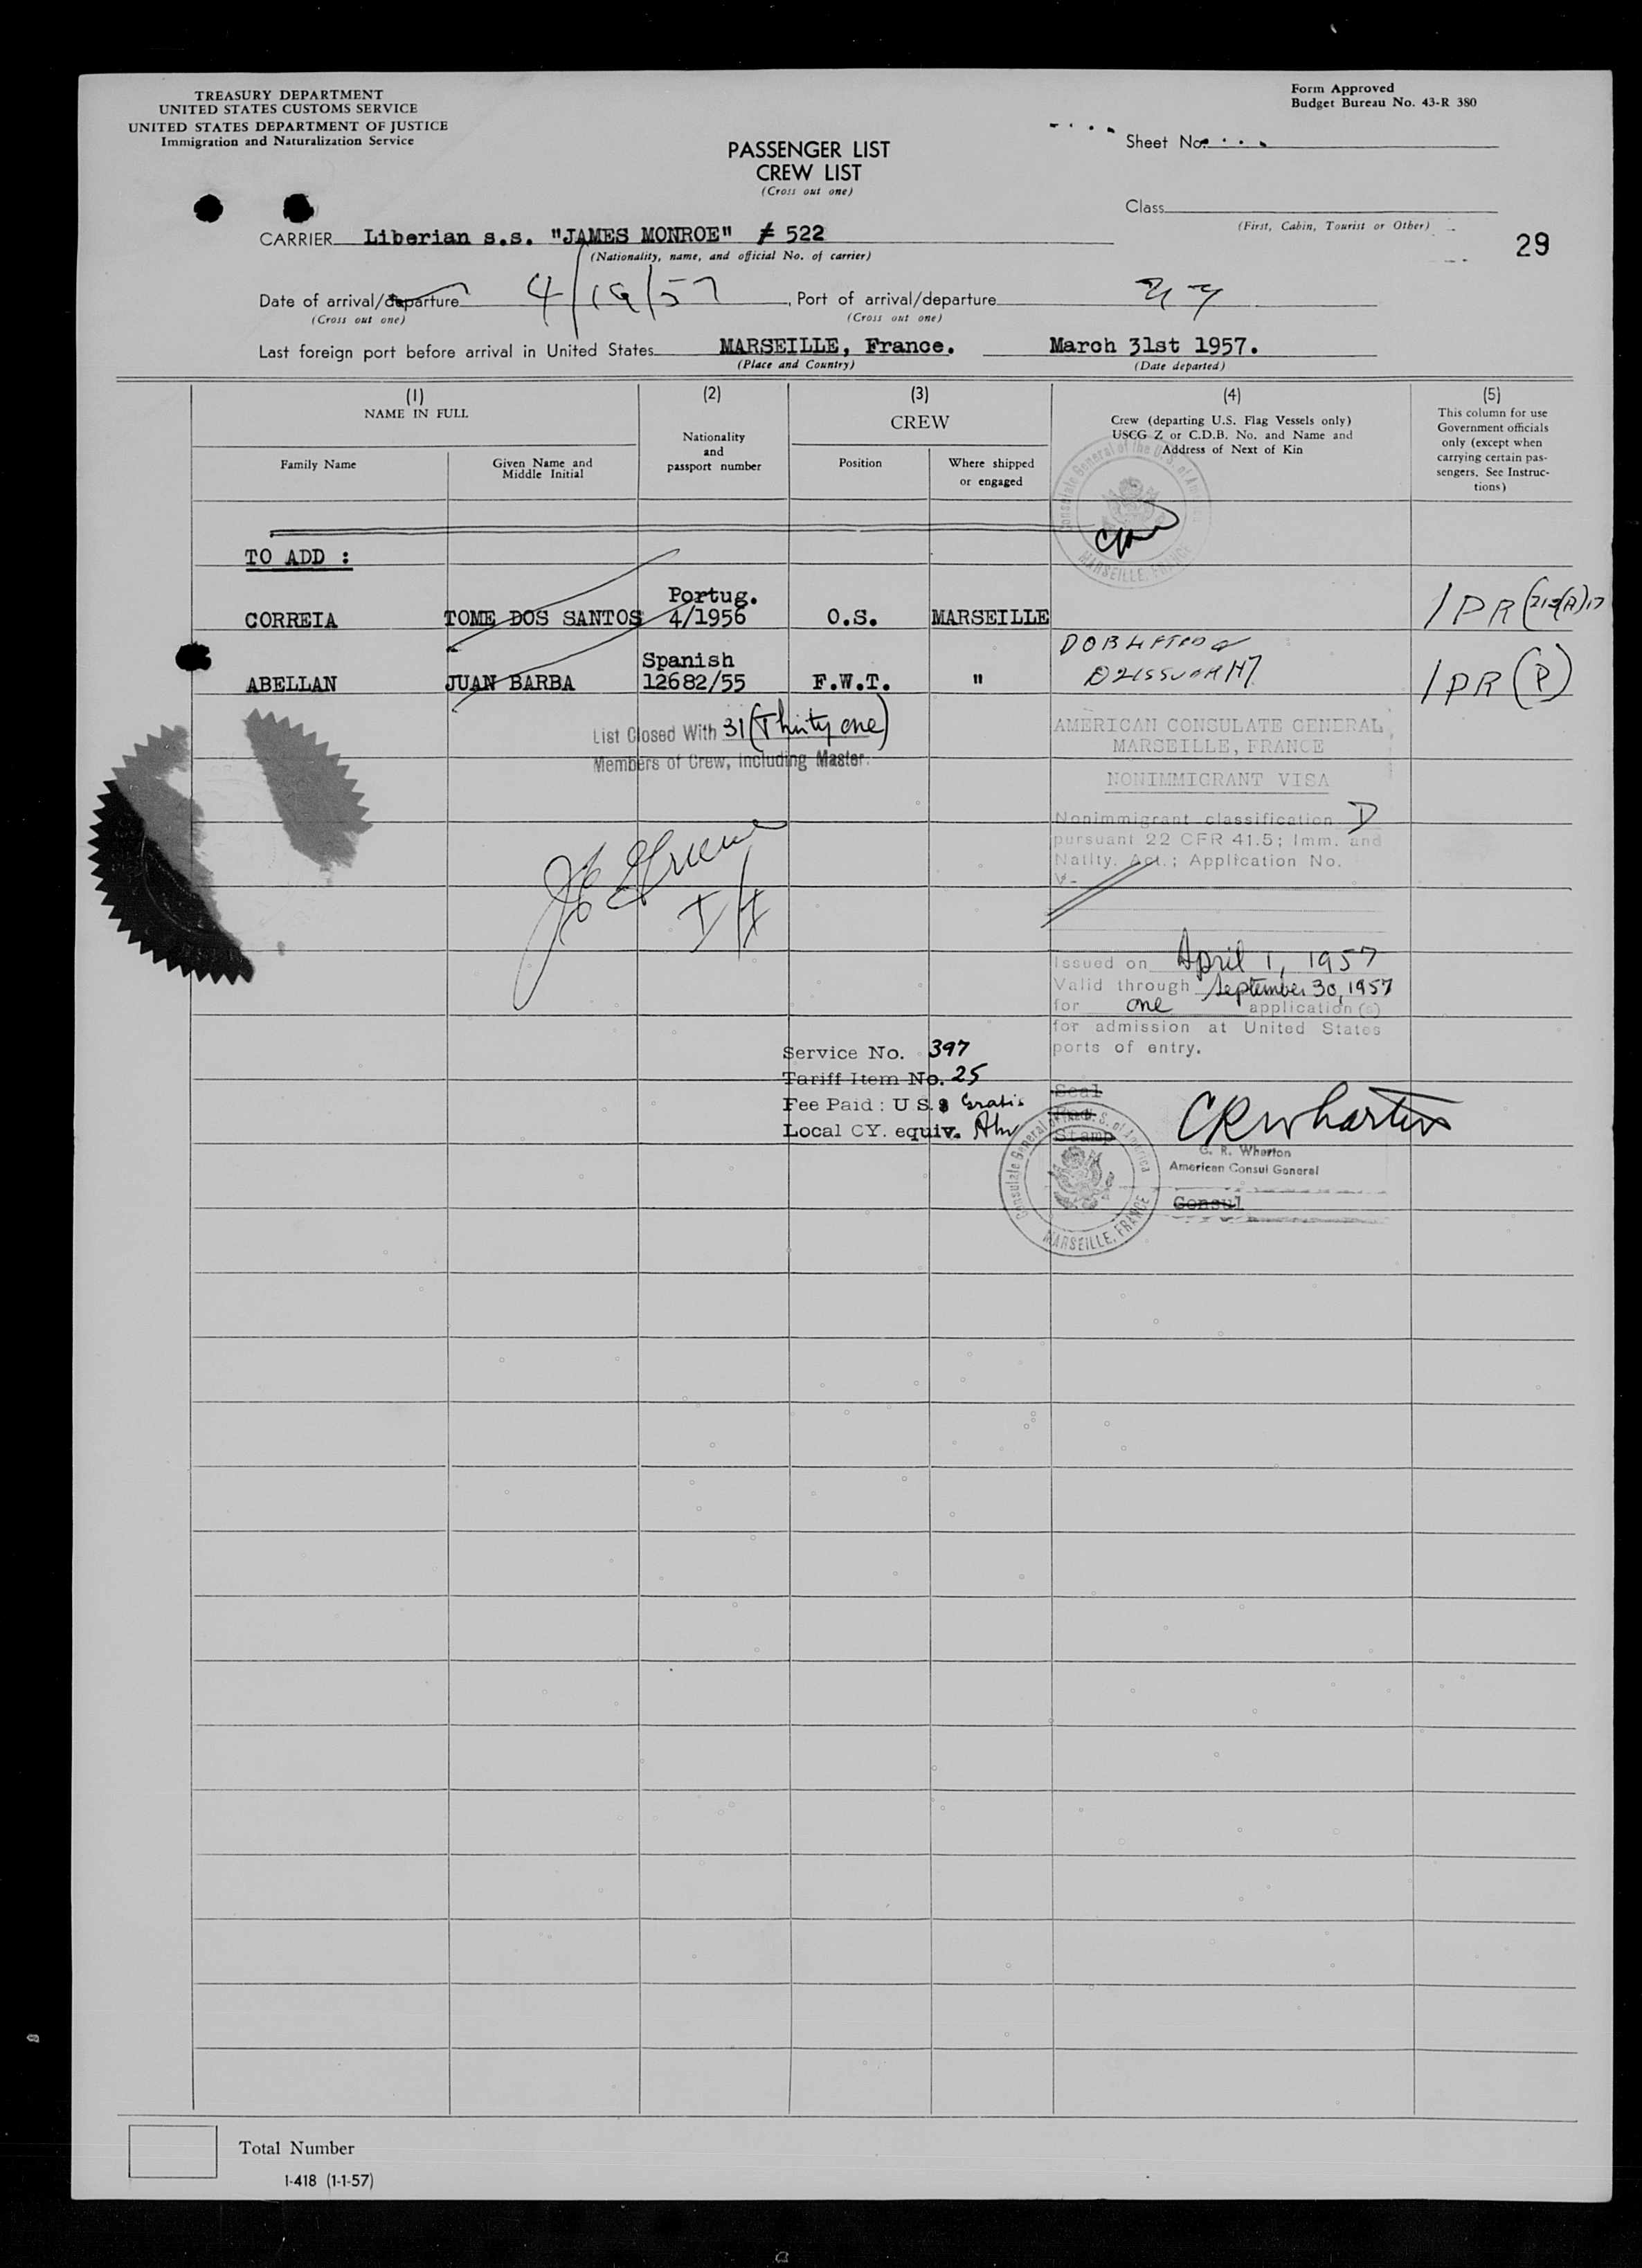 TREASURY DEPARTMENT
UNITED STATES CUSTOMS SERVICE
UNITED STATES DEPARTMENT OF JUSTICE
Immigration and Naturalization Service
Form Approved
Budget Bureau No. 43-R 380
PASSENGER LIST
CREW LIST
(Cross out one)
Sheet No.
Class
(First, Cabin, Tourist or Other)
29
CARRIER Liberian s.s. "JAMES MONROE" ≠ 522
(Nationality, name, and official No. of carrier)
Date of arrival/departure 4/19/57, Port of arrival/departure
(Cross out one) (Cross out one)
Last foreign port before arrival in United States MARSEILLE, France. March 31st 1957.
(Place and Country) (Date departed)
(1) (2) (3) (4) (5)
NAME IN FULL
Family Name
Given Name and
Middle Initial
Nationality
and
passport number
CREW
Position
Where shipped
or engaged
Crew (departing U.S. Flag Vessels only)
USCG Z or C.D.B. No. and Name and
Address of Next of Kin
This column for use
Government officials
only (except when
carrying certain pas-
sengers. See Instruc-
tions)
Consulate General of the U.S. of America
MARSEILLE, FRANCE
TO ADD :
Portug.
CORREIA TOME DOS SANTOS 4/1956 O.S. MARSEILLE
Spanish
ABELLAN JUAN BARBA 12682/55 F.W.T. " 1 PR (P)
List Closed With 31 (Thirty one)
Members of Crew, Including Master.
AMERICAN CONSULATE GENERAL
MARSEILLE, FRANCE
NONIMMIGRANT VISA
Nonimmigrant classification D
pursuant 22 CFR 41.5; Imm. and
Natlty. Act.; Application No.
V-
Issued on April 1, 1957
Valid through September 30, 1957
for one application(s)
for admission at United States
ports of entry.
Service No. 397
Tariff Item No. 25
Fee Paid : U.S.$ Gratis
Local CY. equiv.
Seal
Stamp
Consulate General of the U.S. of America
MARSEILLE, FRANCE
CRWharton
C. R. Wharton
American Consul General
Consul
Total Number
I-418 (1-1-57)